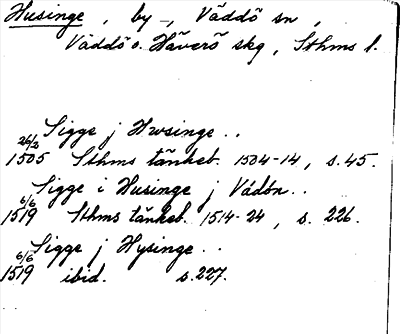 Husinge, by -, Väddö sn,
Väddö o. Häverö skg, Sthms l.
Sigge j Hwsinge..
26/2
1505 Sthms tänkeb. 1504-14, s. 45.
Sigge i Husinge j Vädön..
6/6
1519 Sthms tänkeb. 1514-24, s. 226.
Sigge j Hysinge..
6/6
1519 ibid. s. 227.